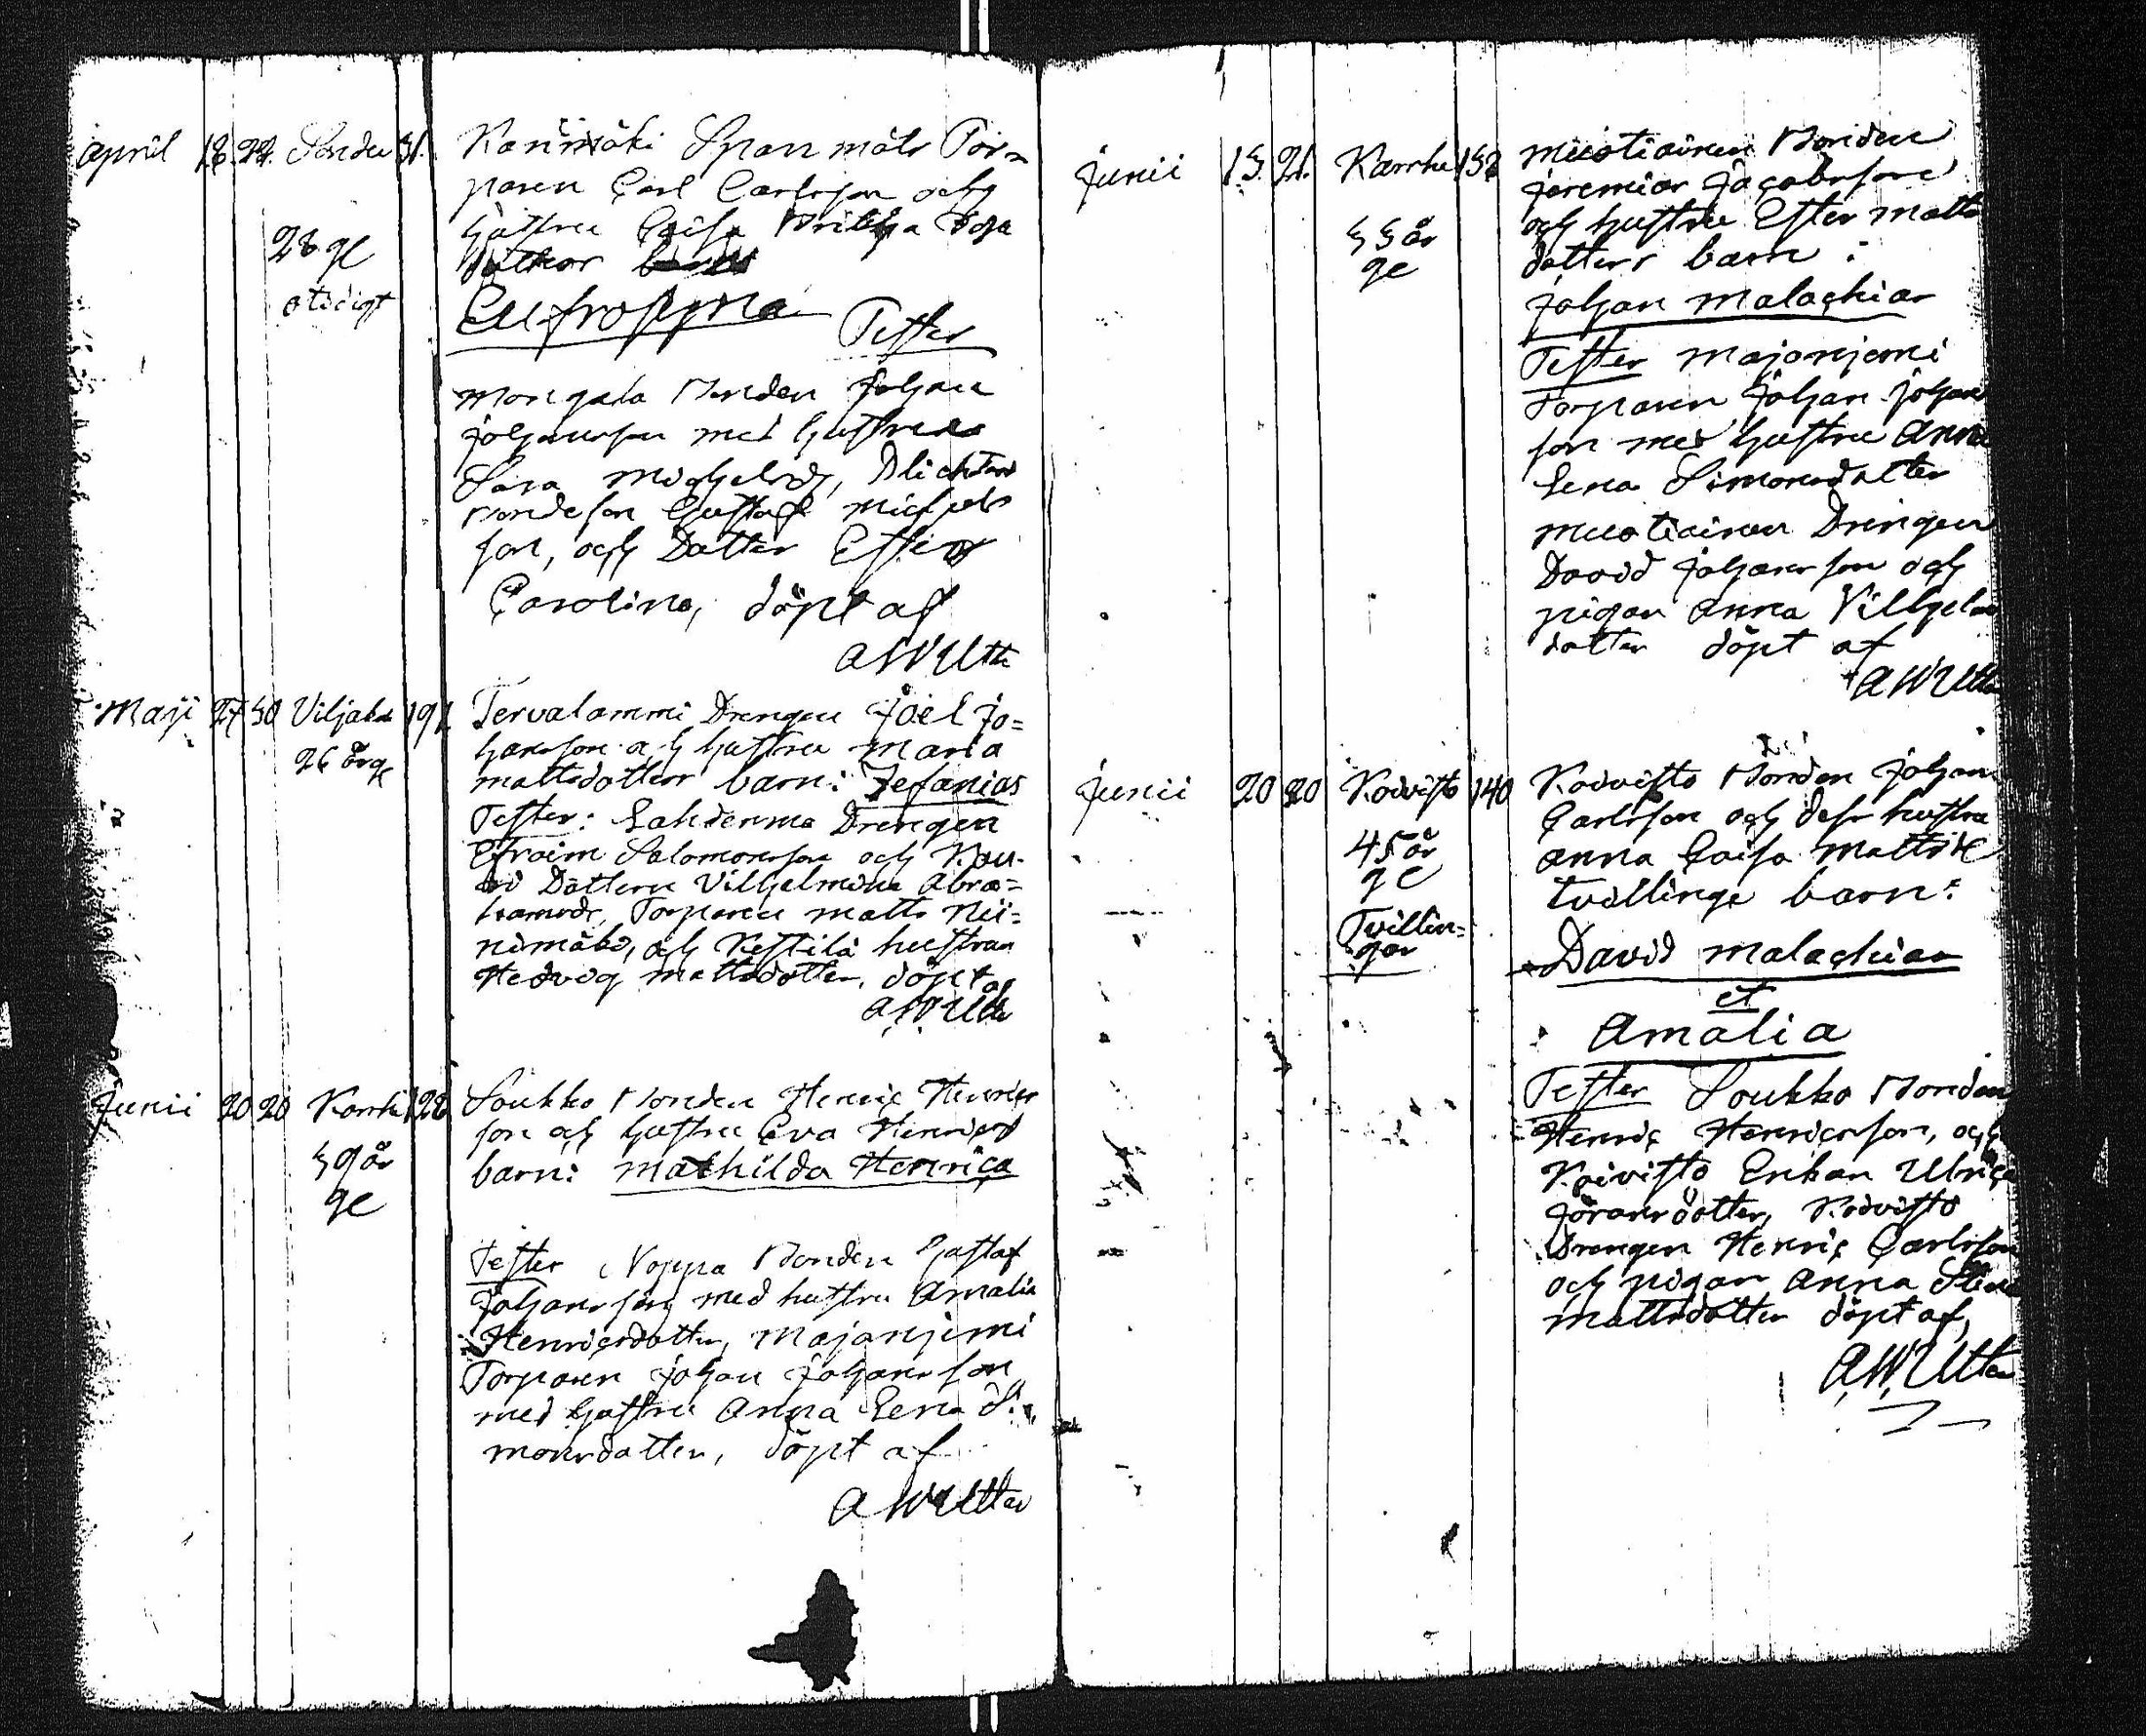 April 18 22. Sondu 31. Kariimäki Spanmåls Tor=
paren Carl Carlsson och
hustru Caisa
28 ge
otidigt
Eufrosyna
Testes
Bonden Johan
Johansson med hustru
Sara Michelsdr,
Bondeson Gustaf Michels
son, och Dotter Ester
Carolina, döpt af
AWUtter
Maji 27 30 Viljakka 191. Tervalammi Drengen Joel Jo=
26 årge
hansson och hustru Maria
Mattsdotters barn: Zefanias
Testes: Lahdenma Drengen
Efraim Salomonsson och
Dottern Vilhelmina Abra=
hamsdr, Torparen Matts Nii=
nimäki, och Kestilä hustrun
Hedvig Mattsdotter, döpt af
AWUtter
Junii 20 20 Karrhu 128 Soukko Bonden Henric Henrics
39 år
ge
son och hustru Eva Henrics
barn: Mathilda Henrica
Testes Noppa Bonden Gustaf
Johansson med hustru Amalia
Henricsdotter, Majanjemi
Torparen Johan Johansson
med hustru Anna Lena Si=
monsdotter, döpt af
AWUtter
Junii 13. 21. Karrhu 132 Mustiainen Bonden
Jeremias Jacobsson
och hustru Ester Matts
33 år
ge
dotters barn:
Johan Malachias
Testes Majanjemi
Torparen Johan Johans
son med hustru Anna
Lena Simonsdotter
Mustiainen Drengen
David Johansson och
pigan Anna Vilhelms
dotter döpt af
AWUtter
Junii 20 20 Koivisto 140 Koivisto Bonden Johan
Carlsson och dess hustru
45 år
ge
Anna Caisa Mattsdr
tvillinge barn:
Tvillin=
gar
David Malachias
et
Amalia
Testes Soukko Bonden
Henric Henricsson, och
Koivisto Enkan Ulrica
Göransdotter, Koivisto
Drengen Henric Carlsson
och pigan Anna Stina
Mattsdotter döpt af,
AWUtter